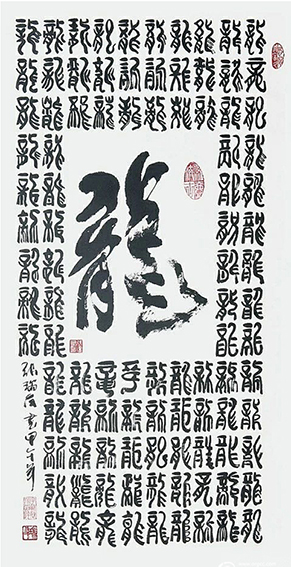 龍龍龍龍龍龍龍龍龍龍
龍龍龍龍龍龍龍龍龍龍
龍龍龍龍龍龍龍龍龍龍
龍龍龍龍
龍龍龍龍
龍龍龍龍
龍龍龍龍
龍龍龍龍
龍龍龍龍
龍
龍龍龍龍龍龍龍龍龍
龍龍龍龍龍龍龍龍龍
龍龍龍龍龍龍龍龍龍
龍龍龍龍龍龍龍龍龍
龍龍龍龍龍龍龍龍龍